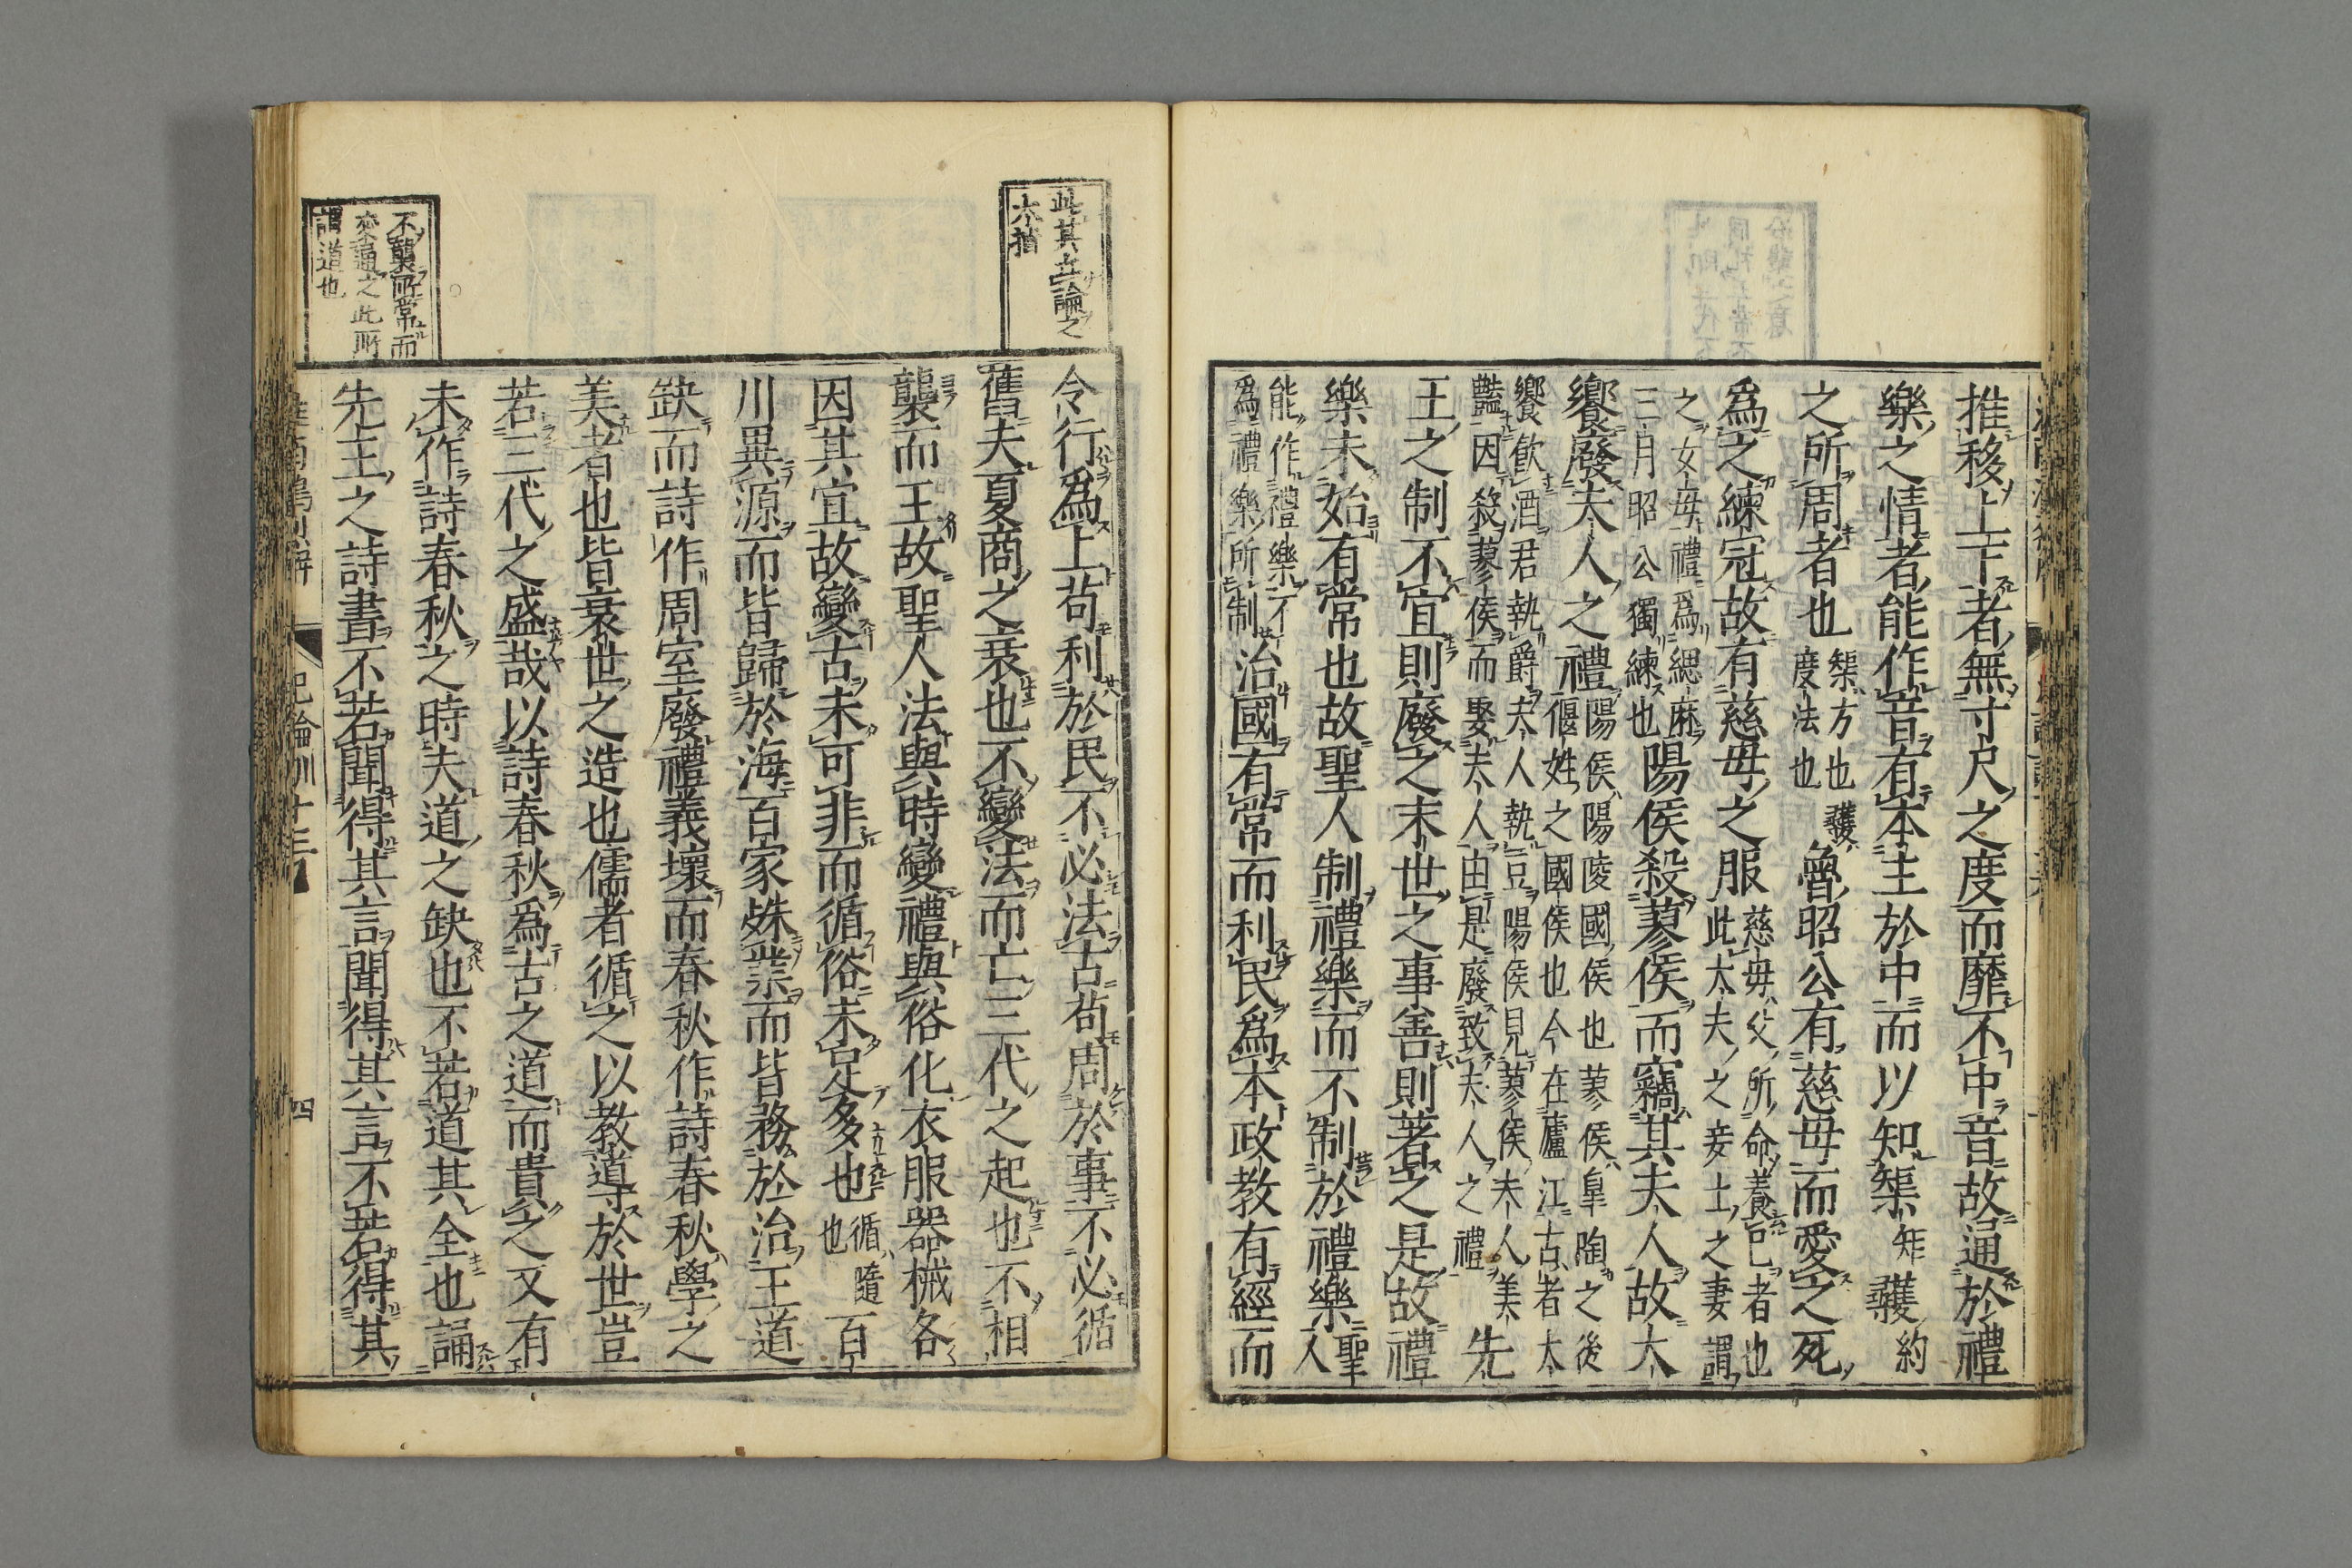 推移上下者無寸尺之度而靡不中音故通於禮
樂之情者能作音有本主於中而以知榘矩彠約
之所周者也榘方也彠度法也魯昭公有慈母而愛之死
爲之練冠故有慈母之服慈母父所命養己者也此大夫之妾士之妻謂
之女母禮爲緦麻三月昭公獨練也陽侯殺蓼侯而竊其夫人故大
饗廢夫人之禮陽侯陽陵國侯也蓼侯皐陶之後偃姓之國侯也今在廬江古者大
饗飮酒君執爵夫人執豆陽侯見蓼侯夫人美豔因殺蓼侯而娶夫人由是廢致夫人之禮先
王之制不宜則廢之末世之事善則著之是故禮
樂未始有常也故聖人制禮樂而不制於禮樂聖人
能作禮樂不爲禮樂所制治國有常而利民爲本政教有經而
此其立論之
大指
令行爲上苟利於民不必法古苟周於事不必循
舊夫夏商之衰也不變法而亡三代之起也不相
襲而王故聖人法與時變禮與俗化衣服器械各
因其宜故變古未可非而循俗未足多也循隨也百
川異源而皆歸於海百家殊業而皆務於治王道
缺而詩作周室廢禮義壞而春秋作詩春秋學之
美者也皆衰世之造也儒者循之以教導於世豈
若三代之盛哉以詩春秋爲古之道而貴之又有
未作詩春秋之時夫道之缺也不若道其全也誦
先王之詩書不若聞得其言聞得其言不若得其
不襲所常而
變通之此所
謂道也
淮南鴻烈解 氾論訓十三 四